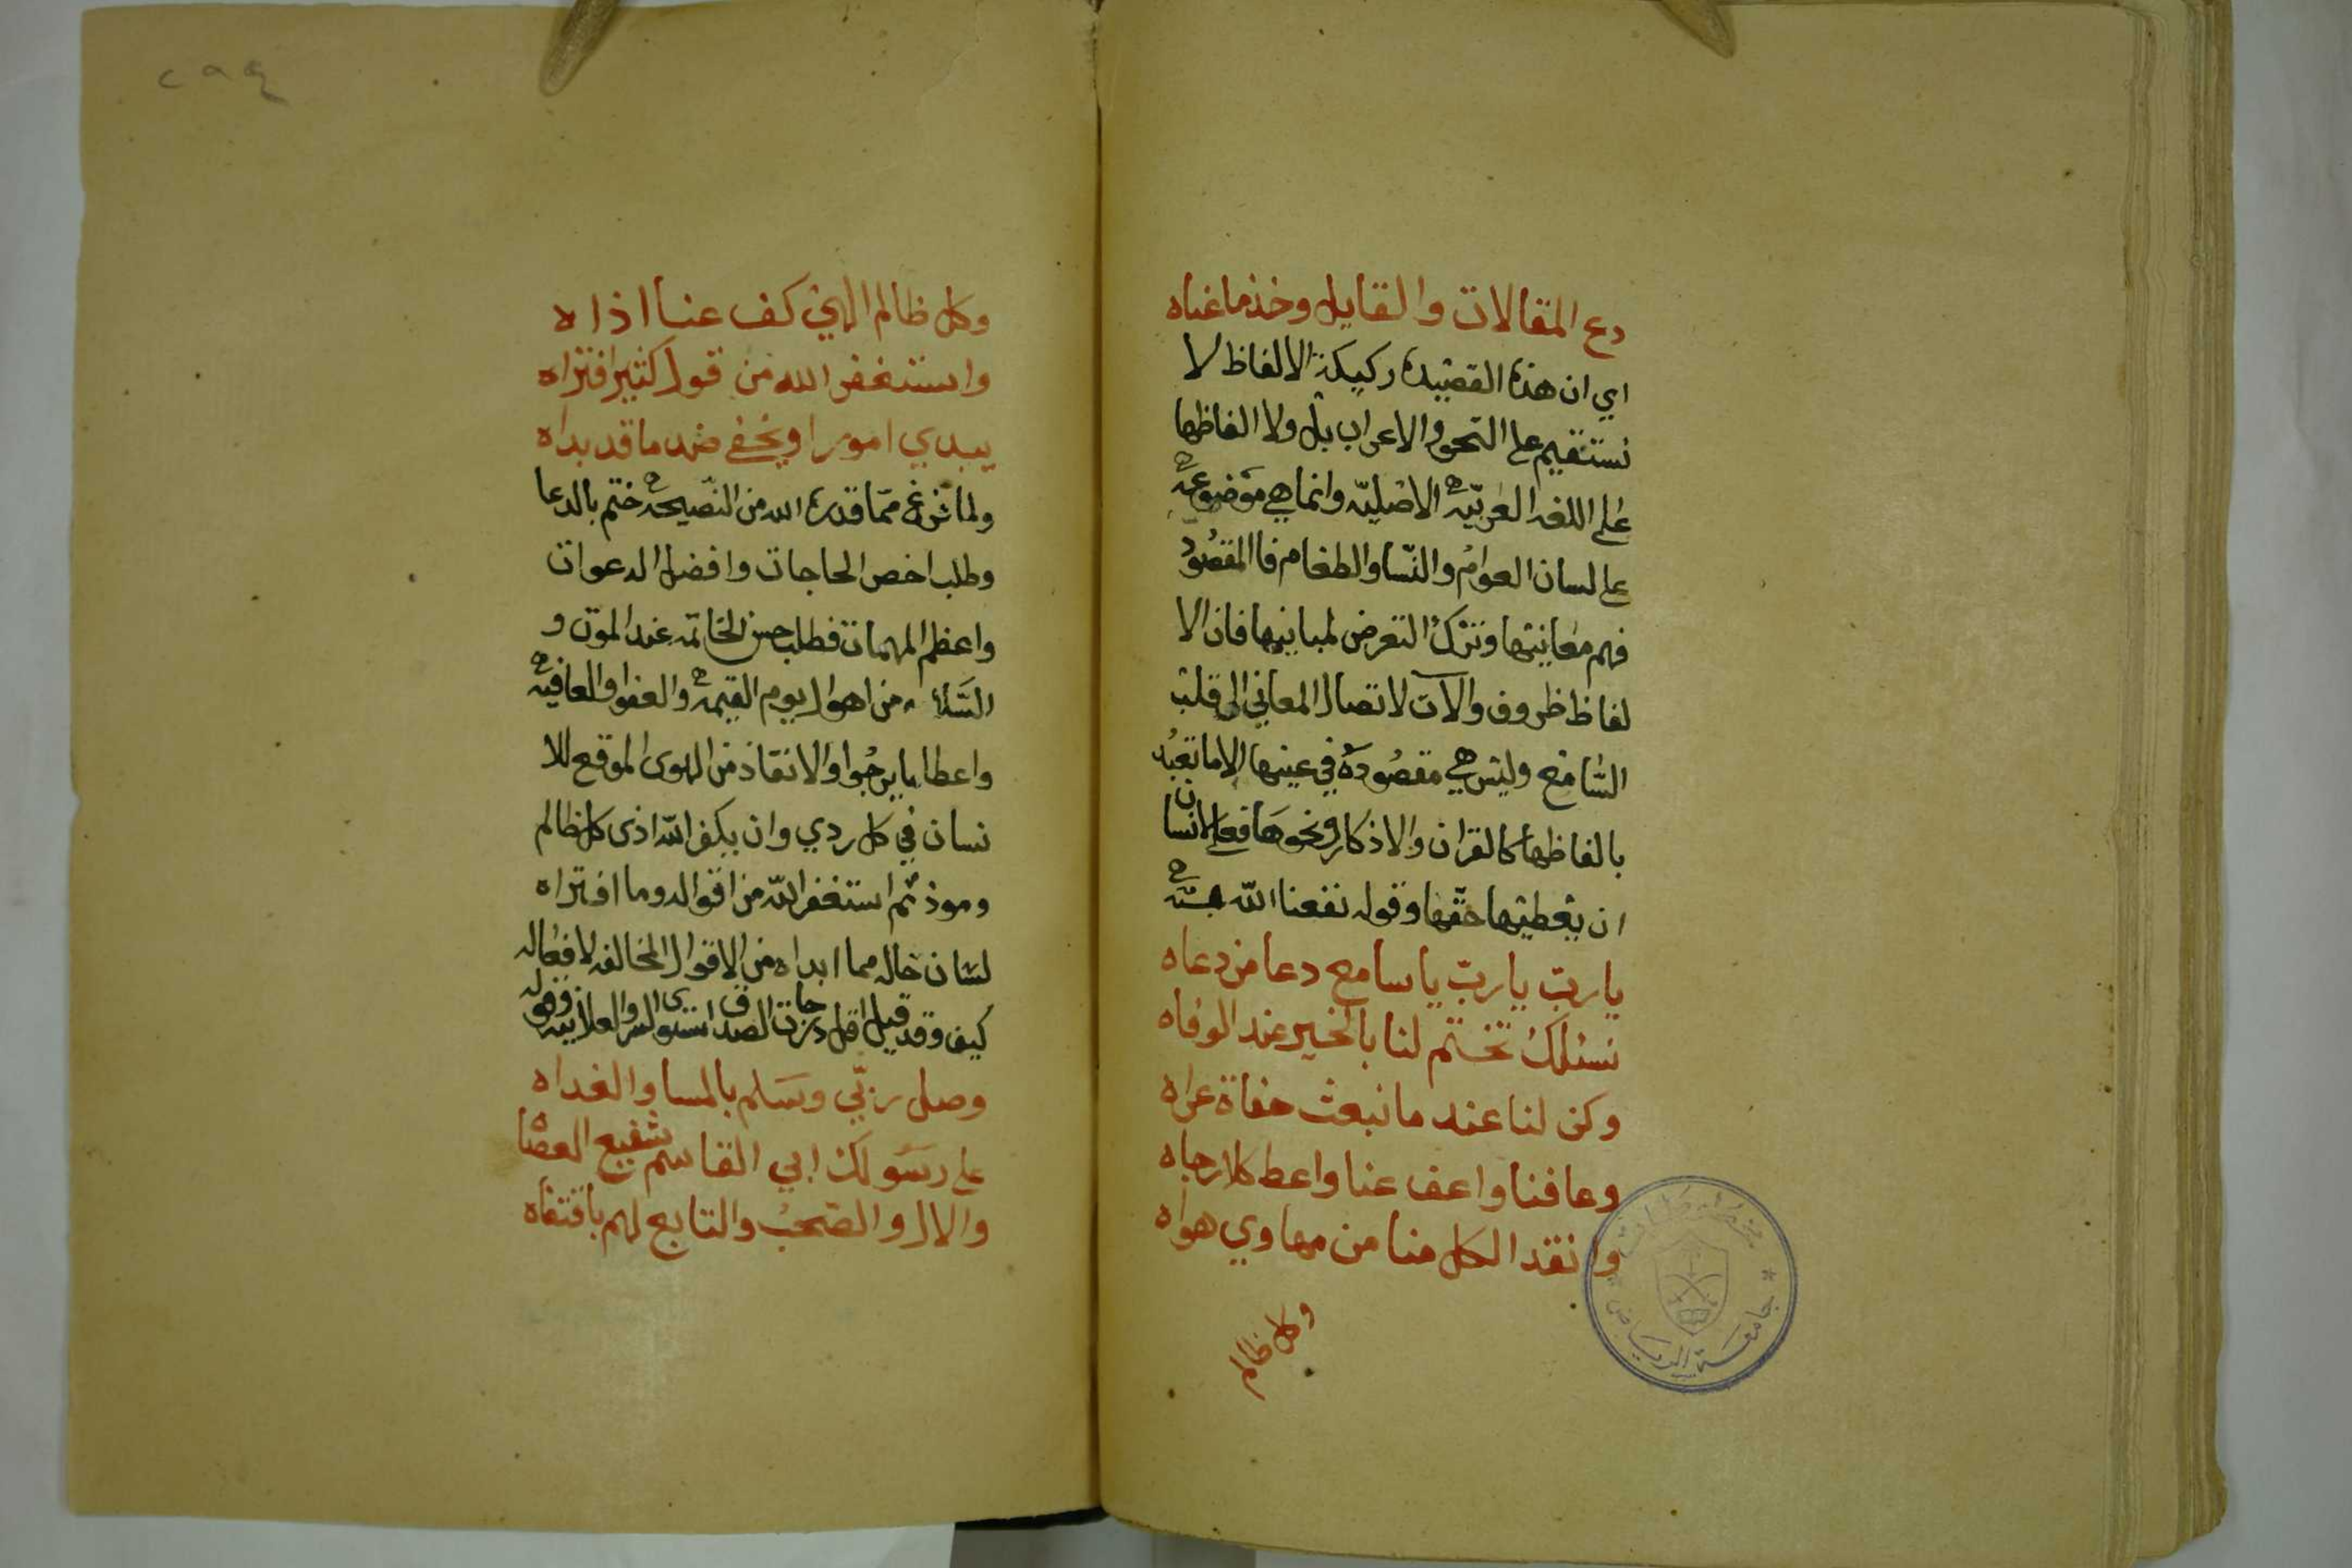 دع المقالات والقايل وخذ ما عناه
اي ان هذه القصيدة ركيكة الالفاظ لا
تستقيم على النحو والاعراب بل ولا الفاظها
على اللغه العربيّه الاصليّه وانما هي موضوعه
على لسان العوام والنّسا والطغام فالمقصود
فهم معانيها وترك التعرض لمبانيها فان الا
لفاظ ظروف والآت لاتصال المعاني الى قلب
السّامع وليس هي مقصوده في عينها الا ما تعبد
بالفاظها كالقران والاذكار ونحوها فعلى الانسان
ان يعطيها حقّها وقوله نفعنا اللّه به
يا ربّ يا ربّ يا سامع دعا من دعاه
نسئلك تختم لنا بالخير عند الوفاه
وكن لنا عند ما نبعث حفاة عراه
وعافنا واعف عنا واعط كلا رجاه
وانقد الكل منا من مهاوي هواه
وكل ظالم
٢٩٤
وكل ظالم الهي كف عنا اذاه
واستغفر الله من قول كثير افتراه
يبدي امورا ويخفي ضد ما قد بداه
ولما فرغ ممّا قدره الله من النّصيحه ختم بالدعا
وطلب اخص الحاجات وافضل الدعوات
واعظم المهمات فطلب حسن الخاتمه عند الموت و
السّلامه من اهوال يوم القيمه والعفوا والعافيه
واعطا ما يرجوا والانقاذ من الهوى الموقع للا
نسان في كل ردي وان يكف اللّه اذى كل ظالم
وموذ ثم استغفر اللّه من اقواله وما افتراه
لسان حاله مما ابداه من الاقوال المخالفه لافعاله
كيف وقد قيل اقل درجات الصدق استوى السر والعلانيه وقوله
وصلى ربّي وسلم بالمسا والغداه
على رسولك ابي القاسم شفيع العصاه
والال والصحب والتابع لهم باقتفاه
جامعة الرياض